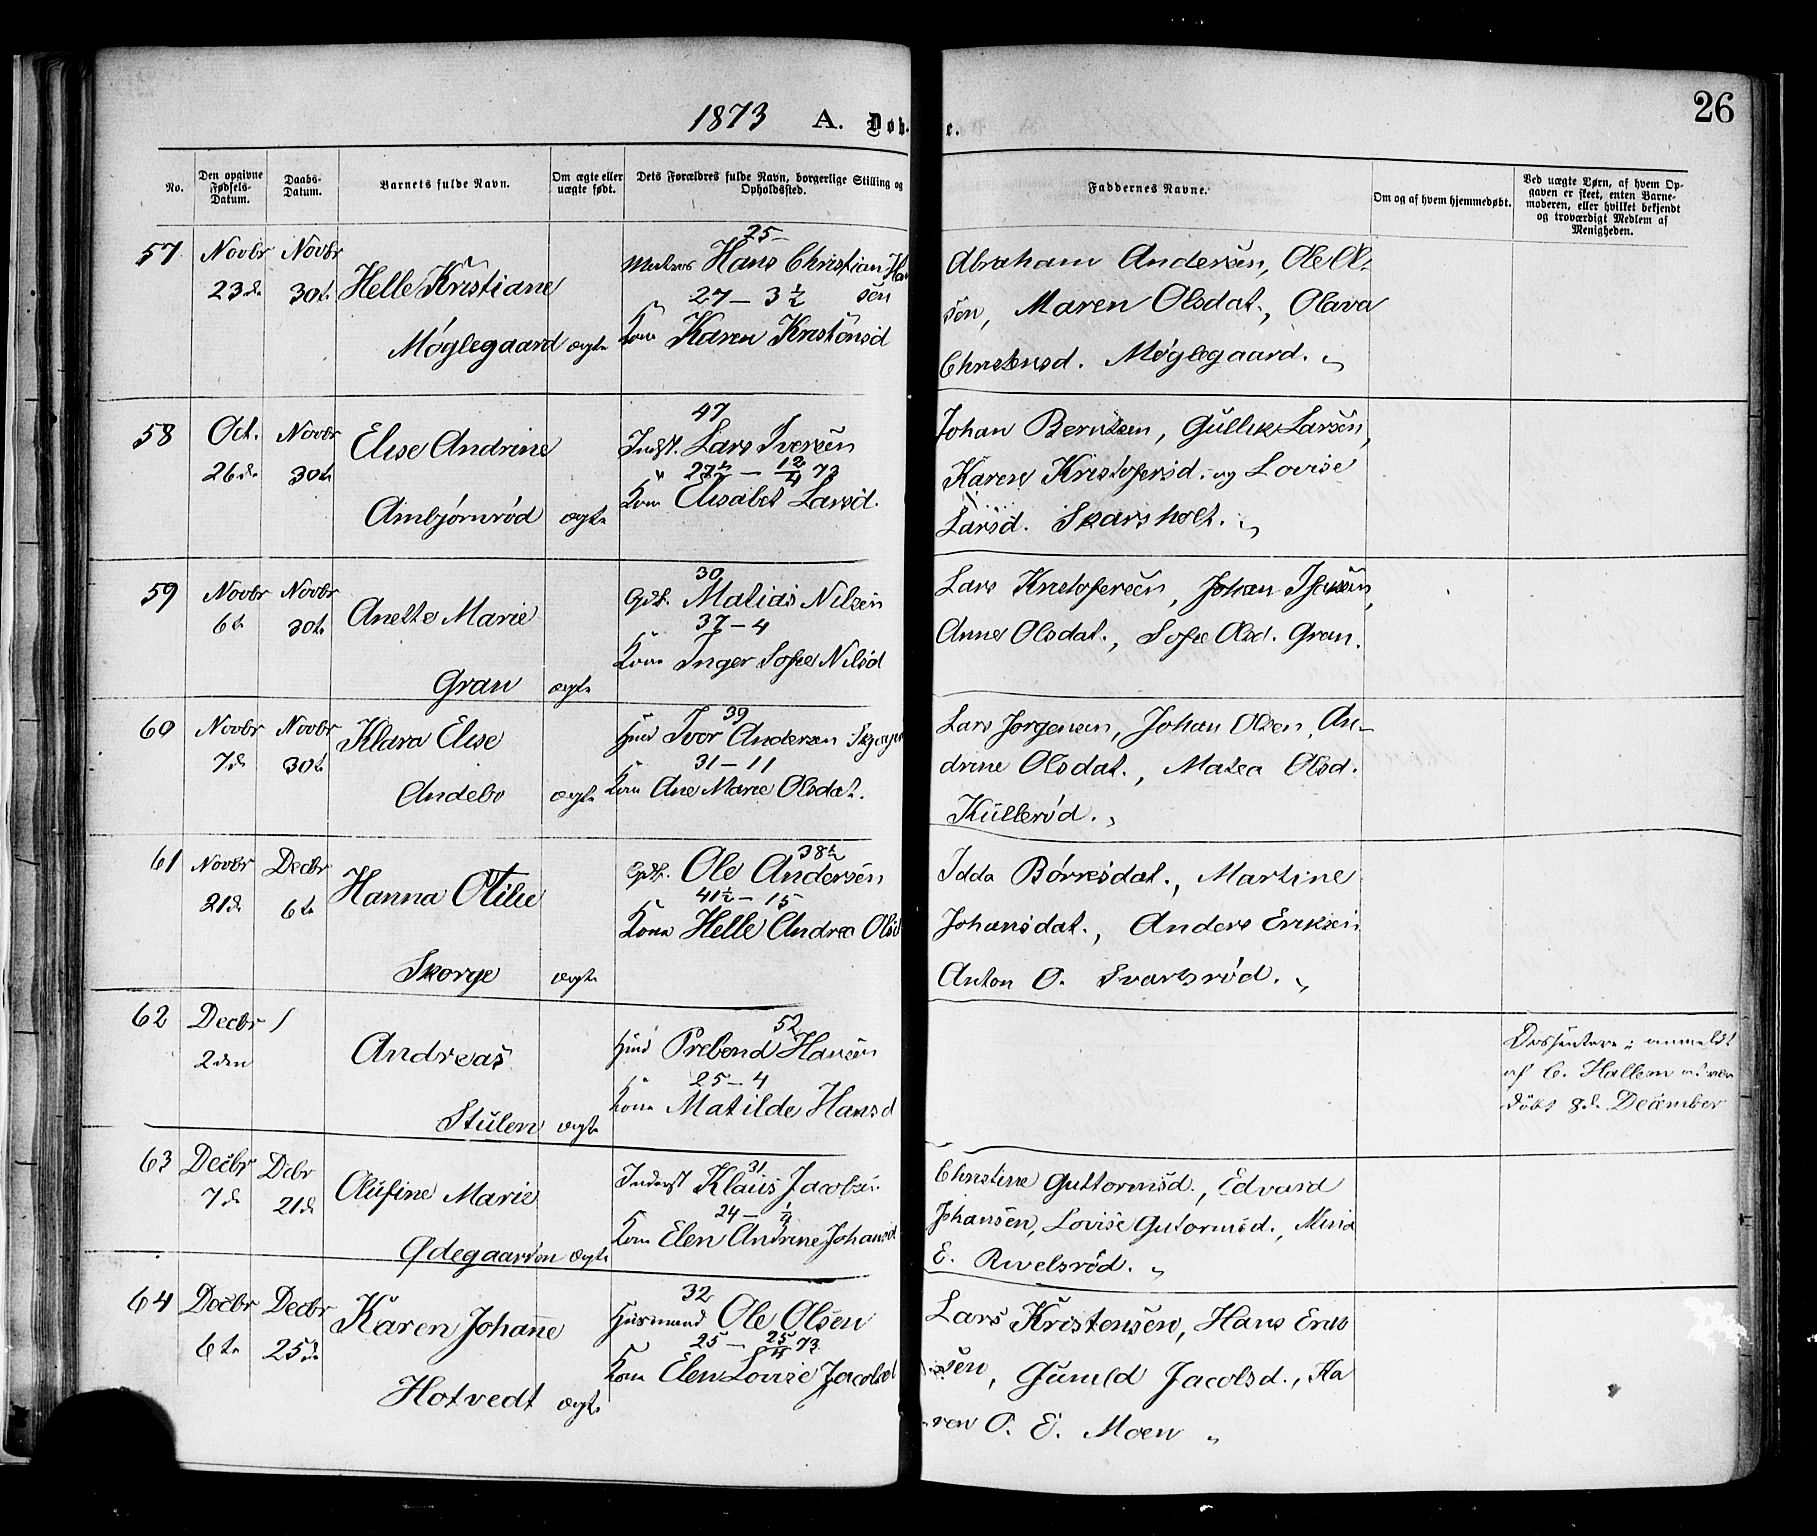 1873 A. Døb e. 26
No.
Den opgivne Fødsels-Datum.
Daabs-Datum.
Barnets fulde Navn.
Om ægte eller uægte født.
Dets Forældres fulde Navn, borgerlige Stilling og Opholdssted.
Faddernes Navne.
Om og af hvem hjemmedøbt.
Ved uægte Børn, af hvem Op-
gaven er skeet, enten Barne-
moderen, eller hvilket bekjendt
og troværdigt Medlem af
Menigheden.
57 Novbr 23de Novbr 30te
Helle Kristiane
Møglegaard ægte
25
Hans Christian Han
sen
27 – 3 ½
Kone Karen Kristensd
Abraham Andersen, Ole Ol-
sen, Maren Olsdat., Olava
Christensd. Møglegaard. „
58 Oct. 26de Novbr 30te
Elise Andrine
Ambjørnrød ægte
47
Indst. Lars Iversen
27½ – 12/4 73
Kone Elisabet Larsd.
Johan Berntsen, Gullik Larsen,
Karen Kristofersd. og Lovise
Larsd. Skarsholt. „
59 Novbr 6te Novbr 30te
Anette Marie
Gran ægte
30
Gdb. Matias Nilsen
37 – 4
Kone Inger Sofie Nilsd
Lars Kristofersen, Johan Isaksen,
Anne Olsdat., Sofie Olsd. Gran.
60 Novbr 7de Novbr 30te
Klara Elise
Andebo ægte
39
Huusd Ivor Andersen
31 – 11
Kone Ane Marie Olsdat.
Lars Jørgensen, Johan Olsen, An-
drine Olsdat., Matea Olsd.
Kullerød. „
61 Novbr 21de Decbr 6te
Hanna Otilie
Skorge ægte
38½
Gdb. Ole Andersen
41½ – 15
Kone Helle Andrea Olsd
Idda Børresdat., Martine
Johansdat., Anders Eriksen
Anton O. Svartsrød. „
62 Decbr 2den /
Andreas
Stulen ægte
52
Prebend Hansen
25 – 4
Kone Matilde Hansd
anmeldt
af C. Hallem at være
døbt 8de December
63 Decbr 7de Dcbr 21de
Olufine Marie
Ødegaarden ægte
31
Inderst Klaus Jacobsen
24 – 1/11
Kone Elen Andrine Johansd
Christine Guttormsd., Edvard
Johansen, Lovise Gutormsd., Mina
E. Rivelsrød. „
64 Decbr 6te Decbr 25de
Karen Johanne
Hotvedt ægte
32
Husmand Ole Olsen
25 – 25/4 73
Kone Elen Lovise Jacobsd
Lars Kristensen, Hans Erik
sen, Gunild Jacobsd., Ka
ren O. E. Moen „